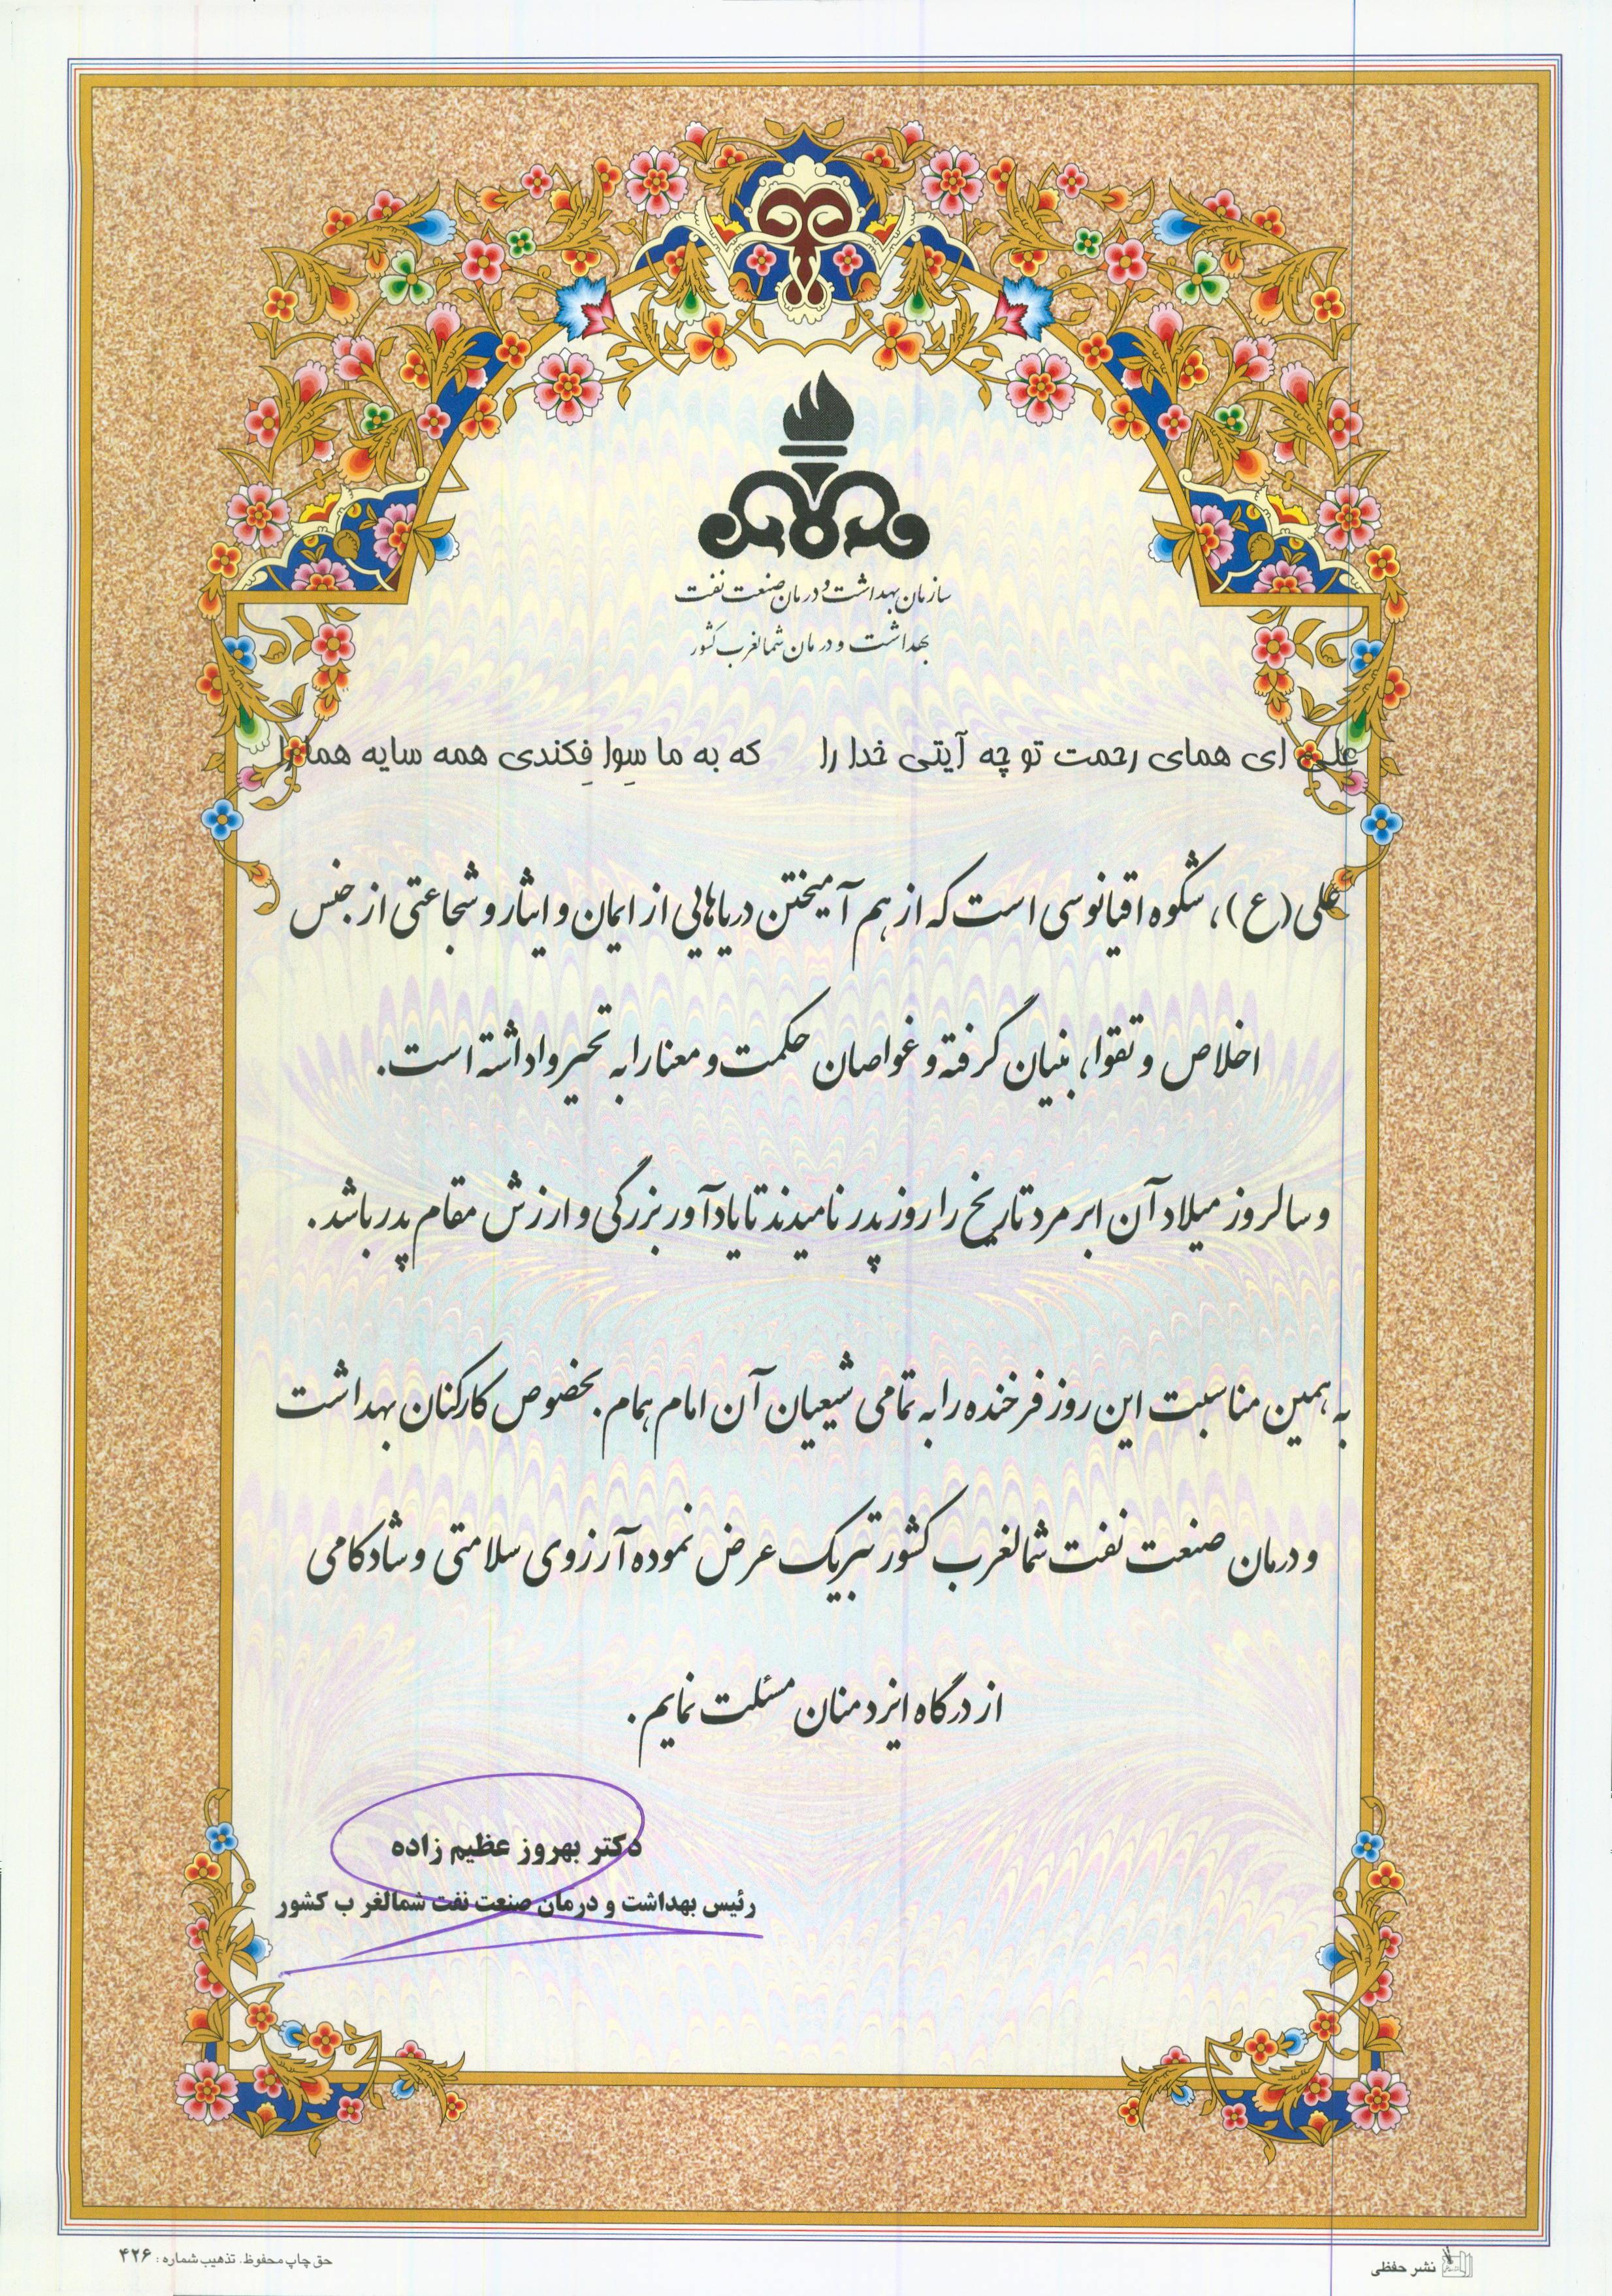 سازمان بهداشت و درمان صنعت نفت
بهداشت و درمان شمالغرب کشور
علی ای همای رحمت تو چه آیتی خدا را که به ما سِوا فِکندی همه سایه هما را
علی (ع)، شکوه اقیانوسی است که از هم آمیختن دریاهایی از ایمان و ایثار و شجاعتی از جنس
اخلاص و تقوا، بنیان گرفته و غواصان حکمت و معنا را به تحیر واداشته است.
و سالروز میلاد آن ابر مرد تاریخ را روز پدر نامیدند تا یادآور بزرگی و ارزش مقام پدر باشد.
به همین مناسبت این روز فرخنده را به تمامی شیعیان آن امام همام. بخصوص کارکنان بهداشت
و درمان صنعت نفت شمالغرب کشور تبریک عرض نموده آرزوی سلامتی و شادکامی
از درگاه ایزد منان مسئلت نمایم.
دکتر بهروز عظیم زاده
رئیس بهداشت و درمان صنعت نفت شمالغر ب کشور
نشر حفظی
حق چاپ محفوظ. تذهیب شماره: ۴۲۶